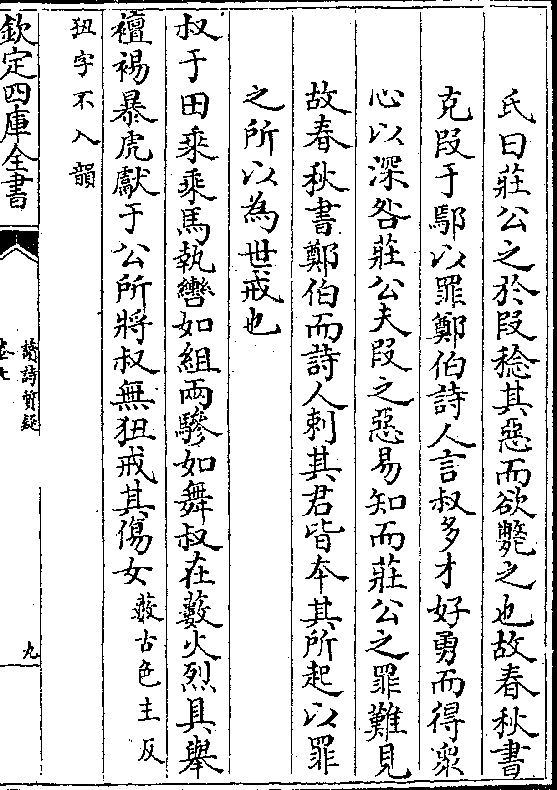 氏曰莊公之於段稔其惡而欲斃之也故春秋書
克段于鄢以罪鄭伯詩人言叔多才好勇而得衆
心以深咎莊公夫段之惡易知而莊公之罪難見
故春秋書鄭伯而詩人刺其君皆本其所起以罪
之所以為世戒也
叔于田乘乘馬執轡如組兩驂如舞叔在藪火烈具舉
襢裼暴虎獻于公所將叔無狃戒其傷女藪古色主反
狃字不入韻
欽定四庫全書
讀詩質疑
卷七
九